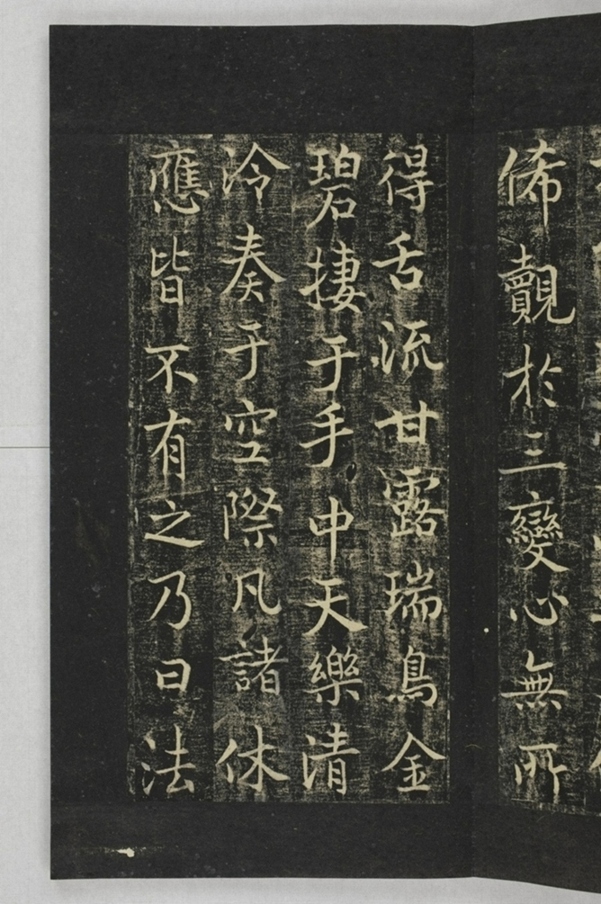 俙觀於三變心無所
得舌流甘露瑞鳥金
碧棲于手中天樂清
泠奏于空際凡諸休
應皆不有之乃曰法